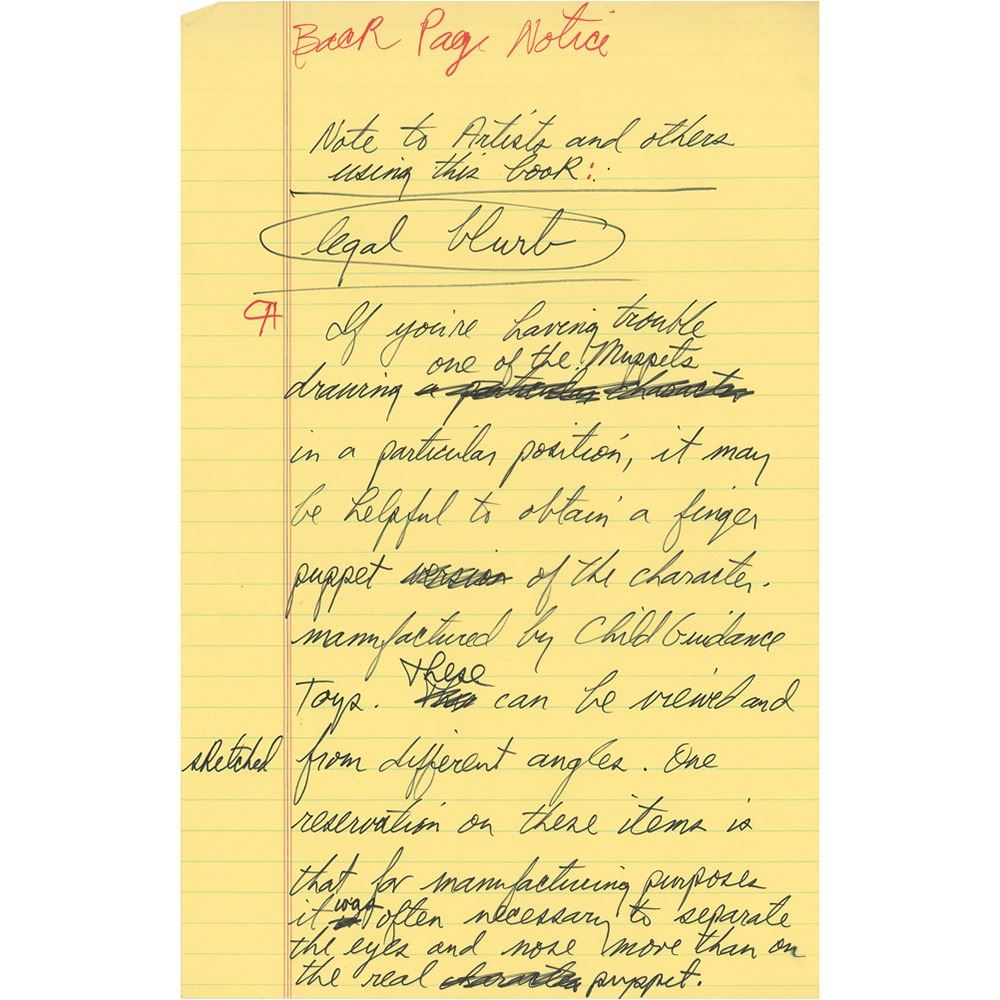 Back Page Notice
Note to Artists and others
using this book:
legal blurb
¶ If you're having trouble
one of the Muppets
drawing a particular character
in a particular position, it may
be helpful to obtain a finger
puppet version of the character.
manufactured by Child Guidance
These
Toys. can be viewed and
sketched from different angles. One
reservation on these items is
that for manufacturing purposes
was
it often necessary to separate
the eyes and nose more than on
the real character puppet.